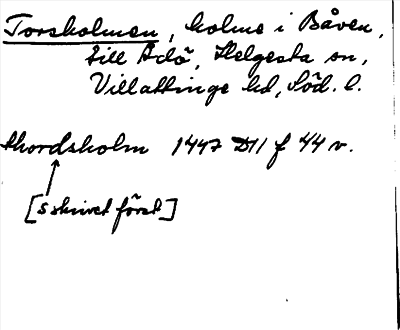 Torsholmen, holme i Båven,
till Ådö, Helgesta sn,
Villåttinge hd, Söd. l.
thordsholm 1447 D11 f 44 v.
[s skrivet först]